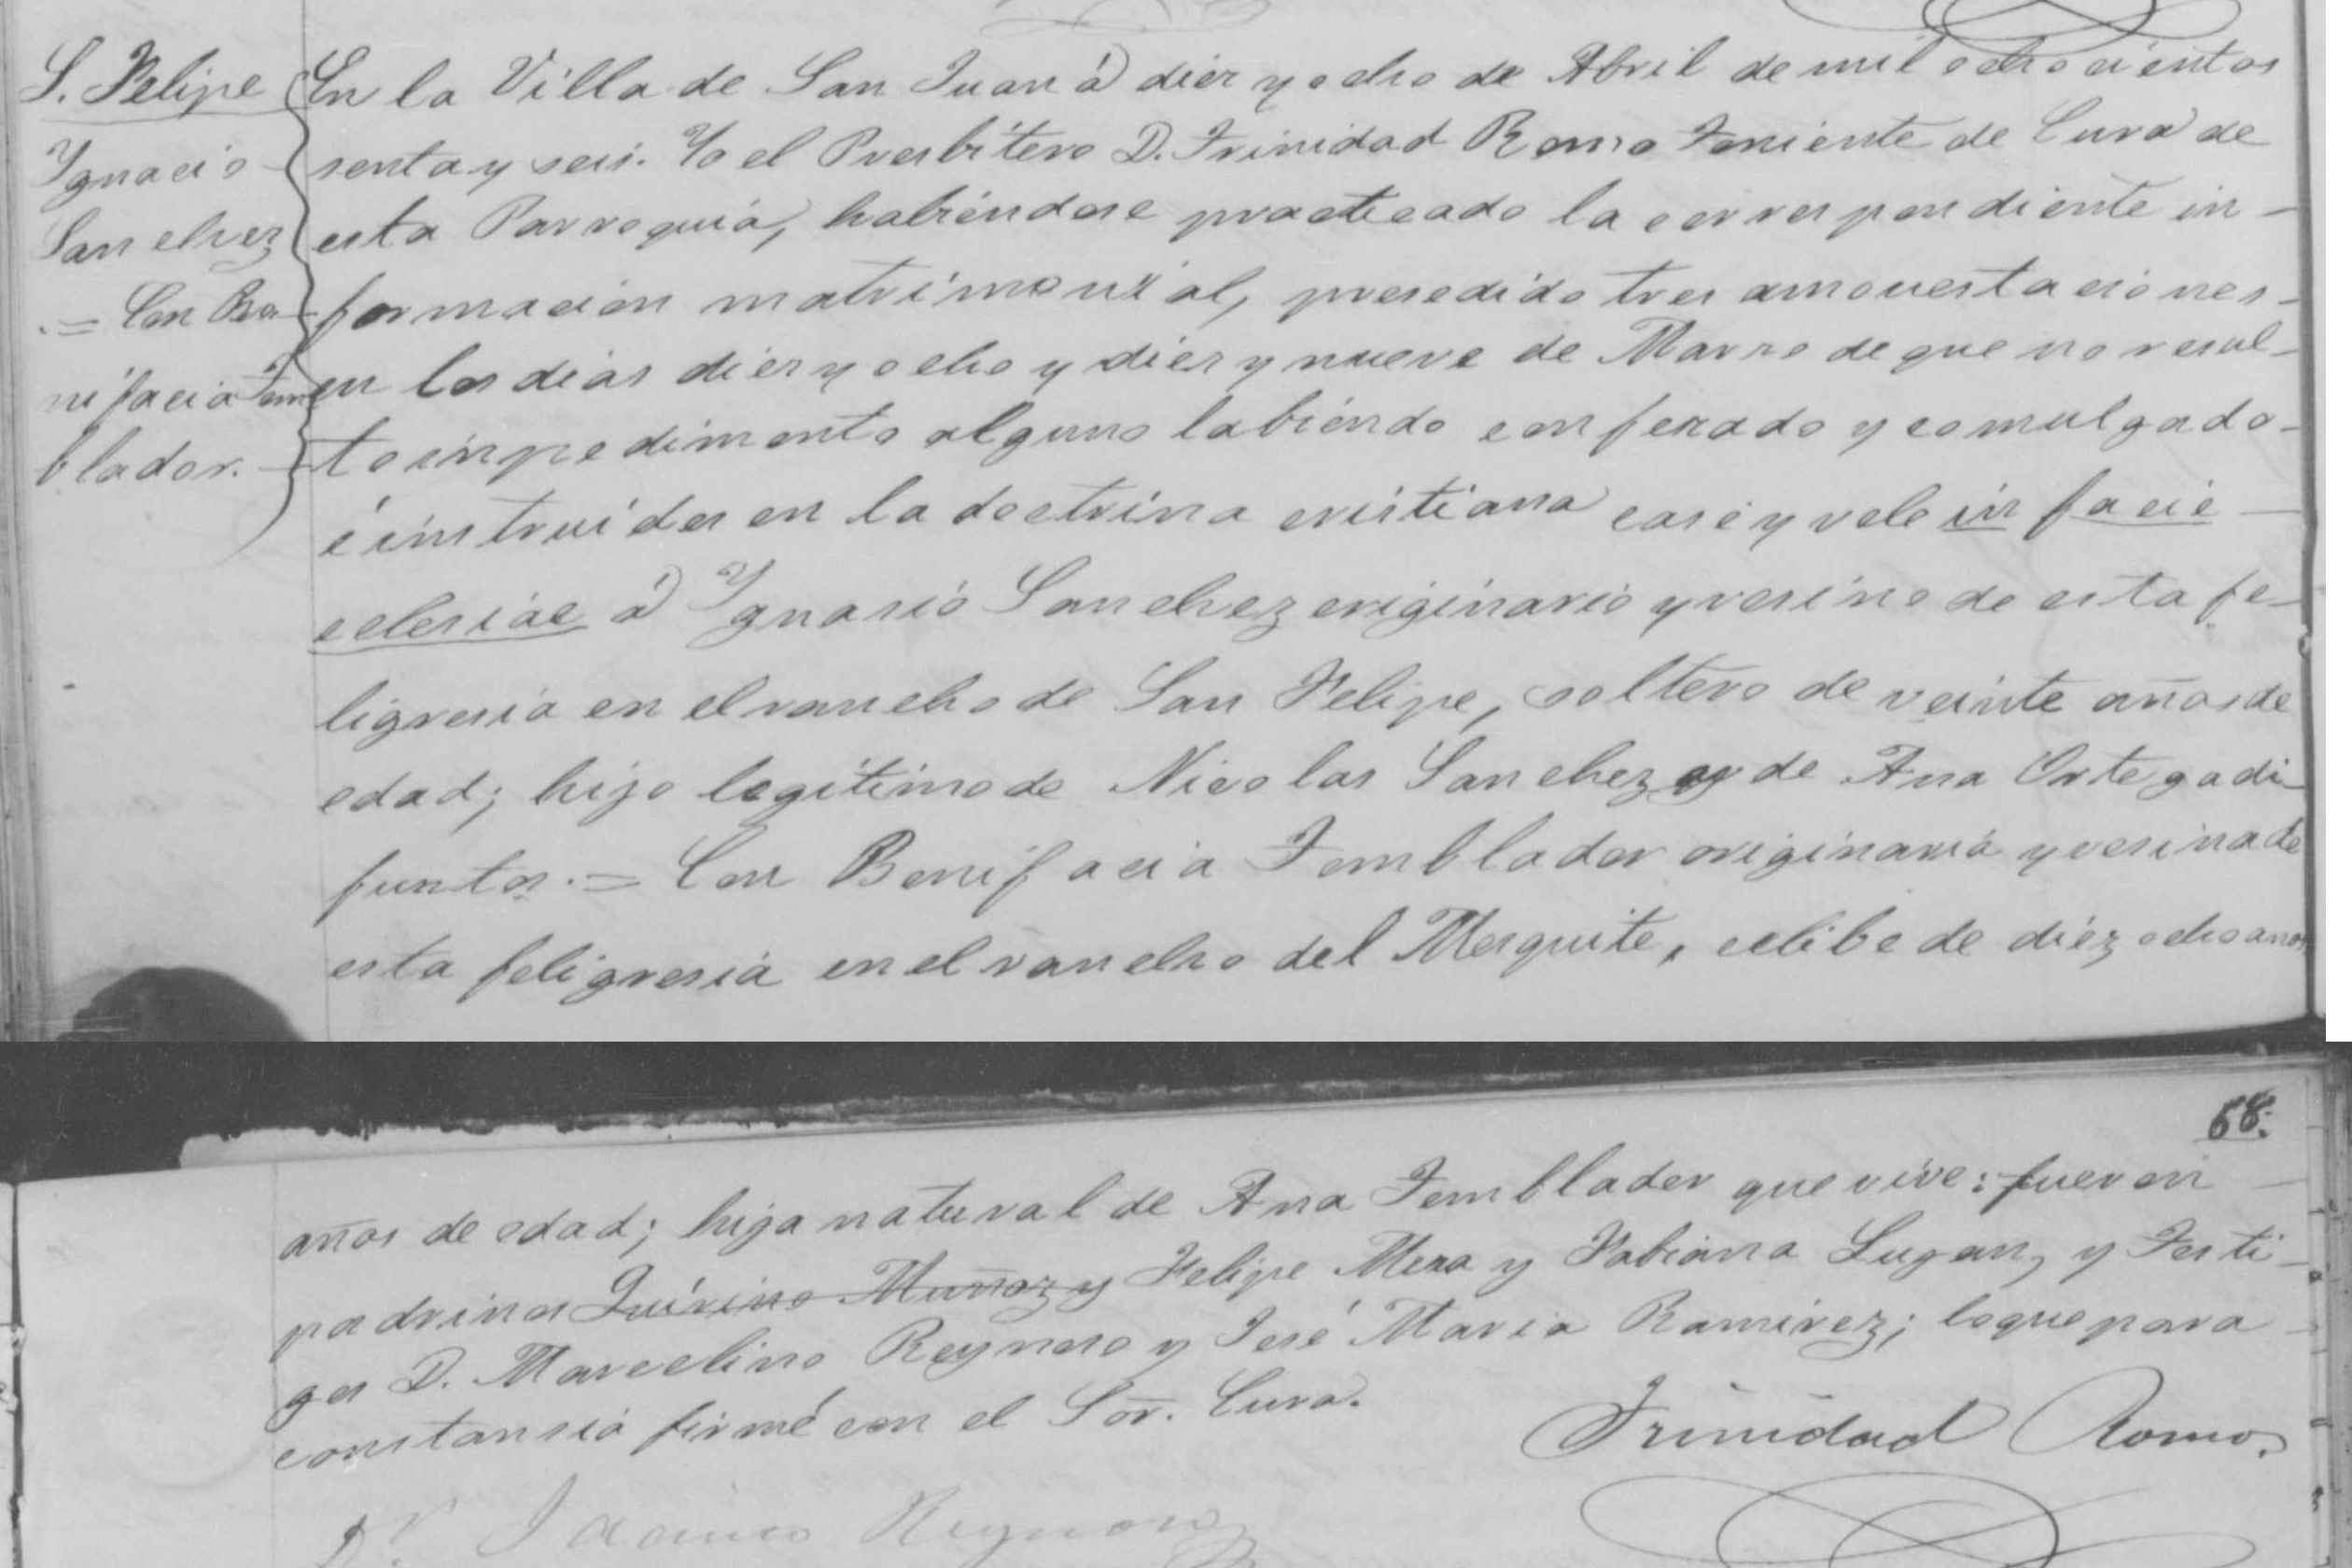 S. Felipe
Ygnacio
Sanchez
= Con Bo-
nifacia Tem
blador.
En la Villa de San Juan á diez y ocho de Abril de mil ochocientos
senta y seis. Yo el Presbítero D. Trinidad Romo Teniente de Cura de
esta Parroquia, habiendose practicado la correspondiente in-
formacion matrimonial, presedido tres amonestaciones-
en los dias diez y ocho y diez y nueve de Marzo de que no resul-
to inpedimento alguno labiendo confezado y comulgado-
é instruidos en la doctrina cristiana casé y vele in facie
eclesiae á Ygnasio Sanchez originario y vesino de esta fe-
ligresia en el rancho de San Felipe, soltero de veinte años de
edad; hijo legítimo de Nicolas Sanchez y de Ana Ortega di-
funtos.= Con Bonifacia Temblador originaria y vesina de
esta feligresia en el rancho del Mesquite, celibe de diéz ocho anos
68.
años de edad; hija natural de Ana Temblador que vive: fueron
padrinos Quirino Muñoz y Felipe Meza y Fabiana Lugan, y Testi-
gos D. Marcelino Reynoso y José Maria Ramirez; lo que para
constansia firmé con el Sōr. Cura.
Trinidad Romo.
Jacinto Reynoso